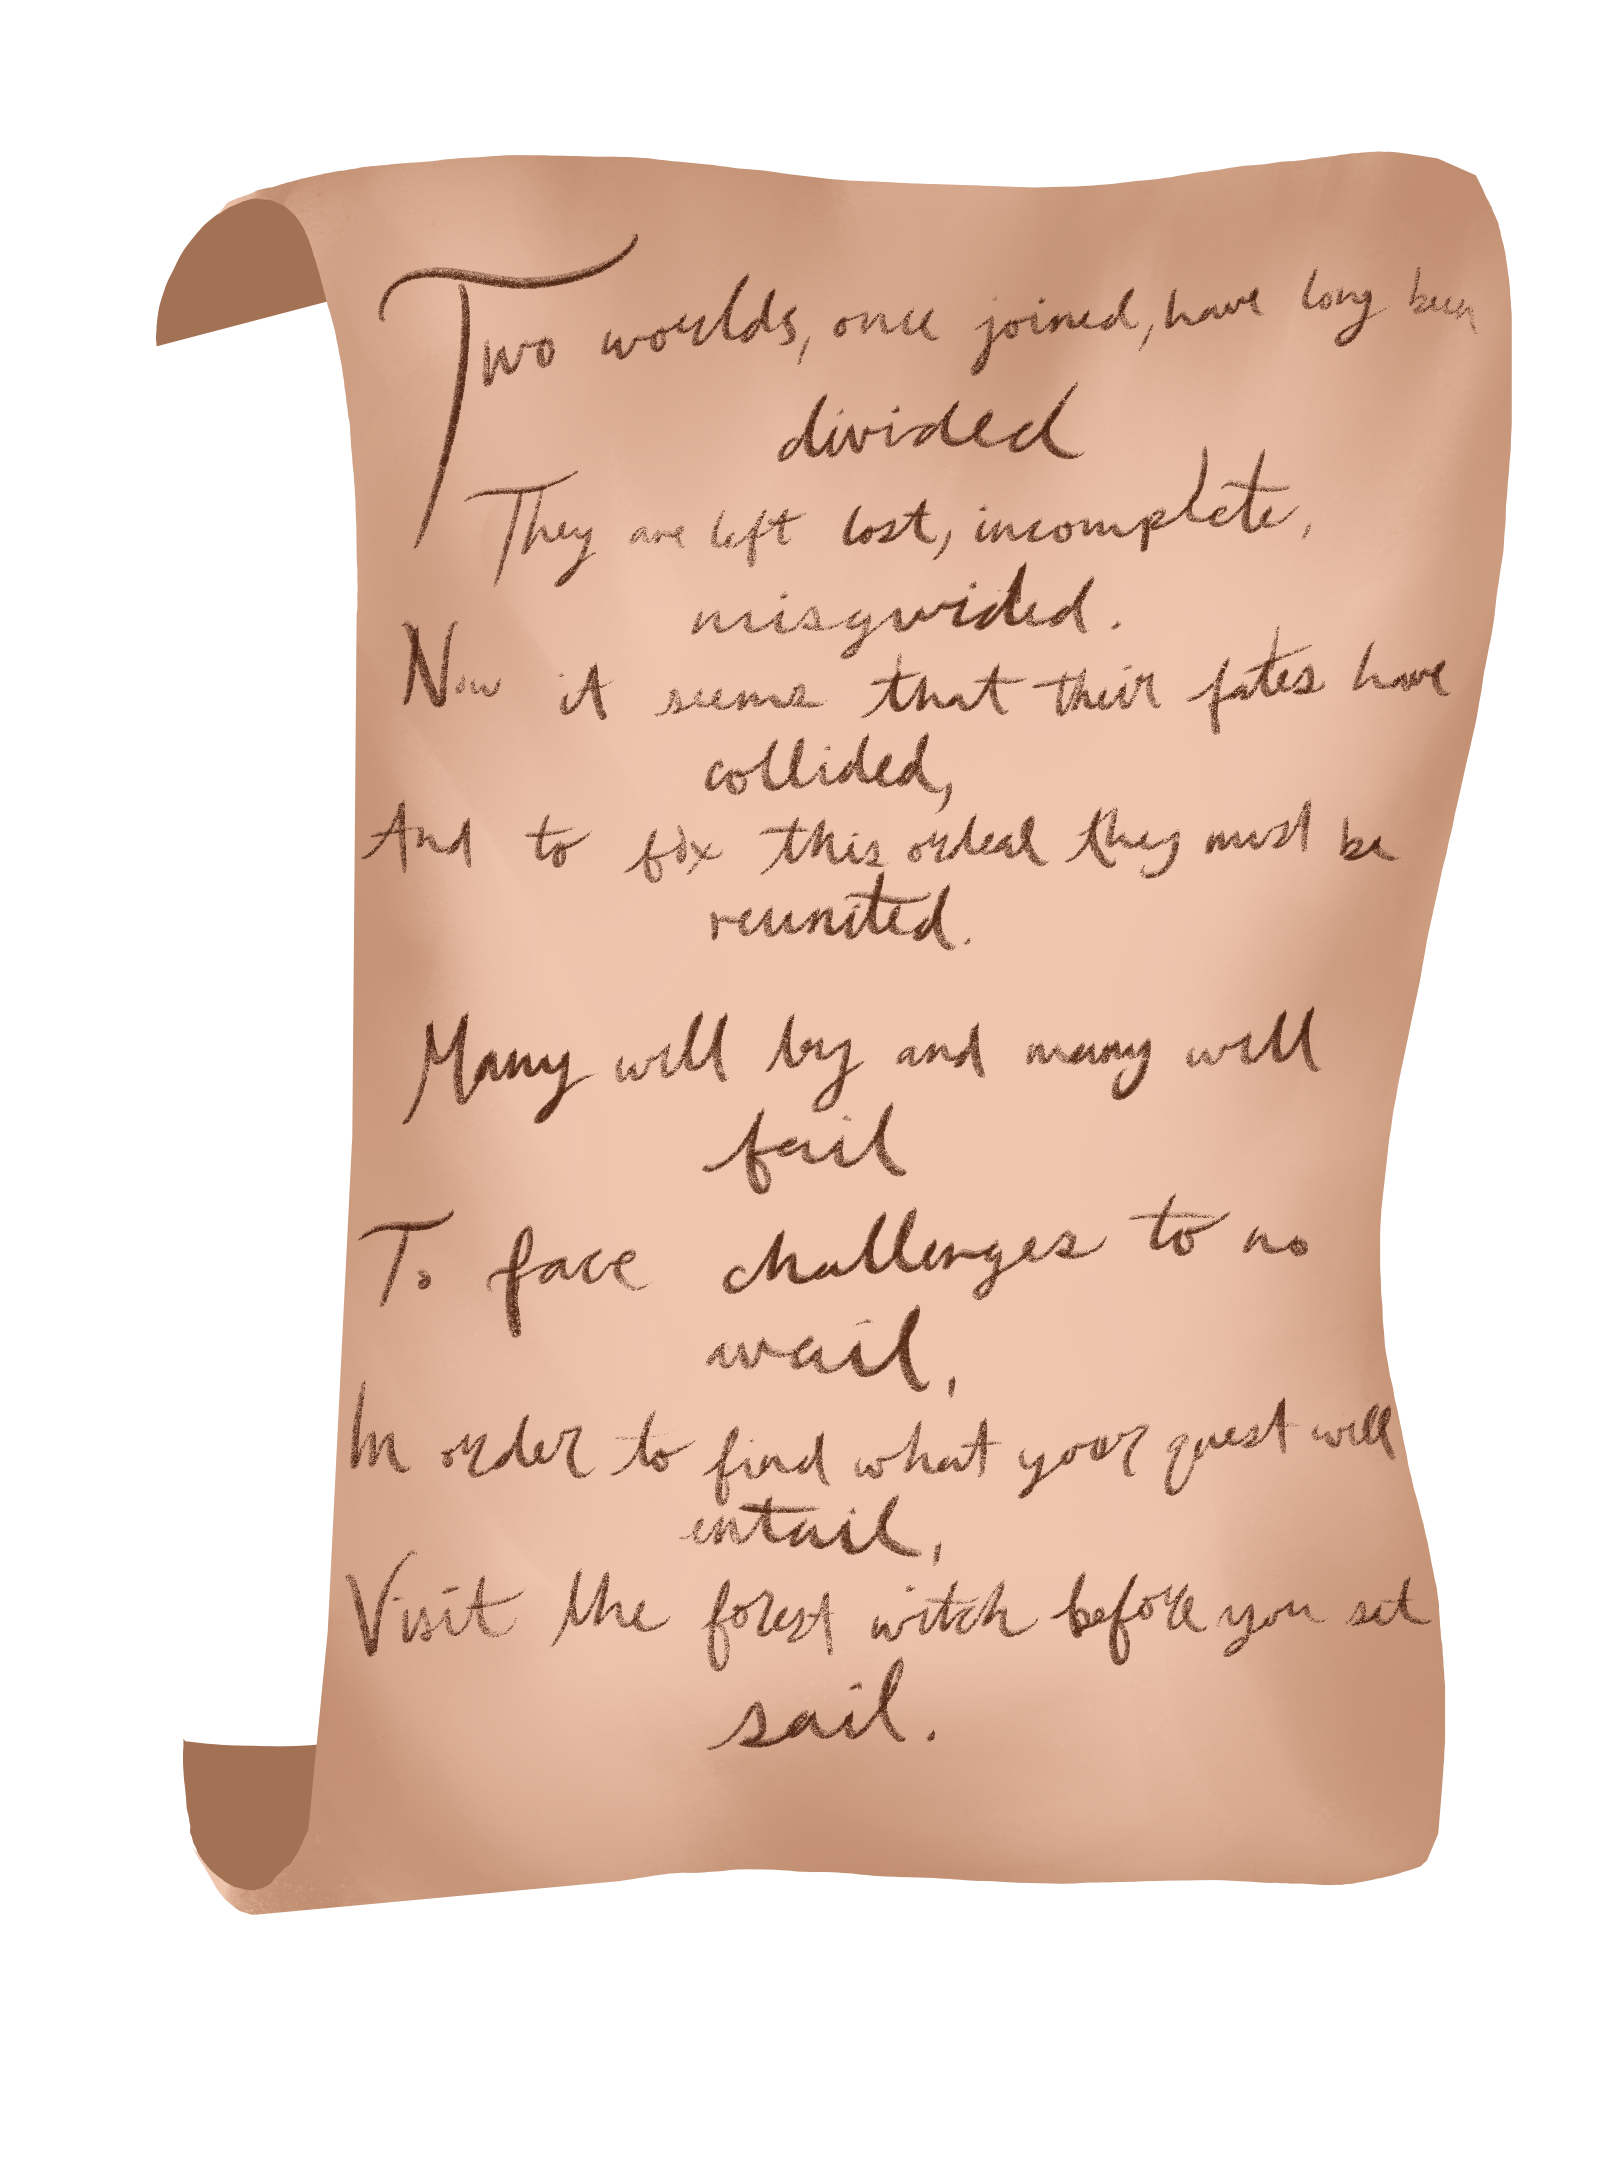 Two worlds, once joined, have long been
divided
They are left lost, incomplete,
misguided.
Now it seems that their fates have
collided,
And to fix this ordeal they must be
reunited.
Many will try and many will
fail
To face challenges to no
avail,
In order to find what your quest will
entail,
Visit the forest witch before you set
sail.